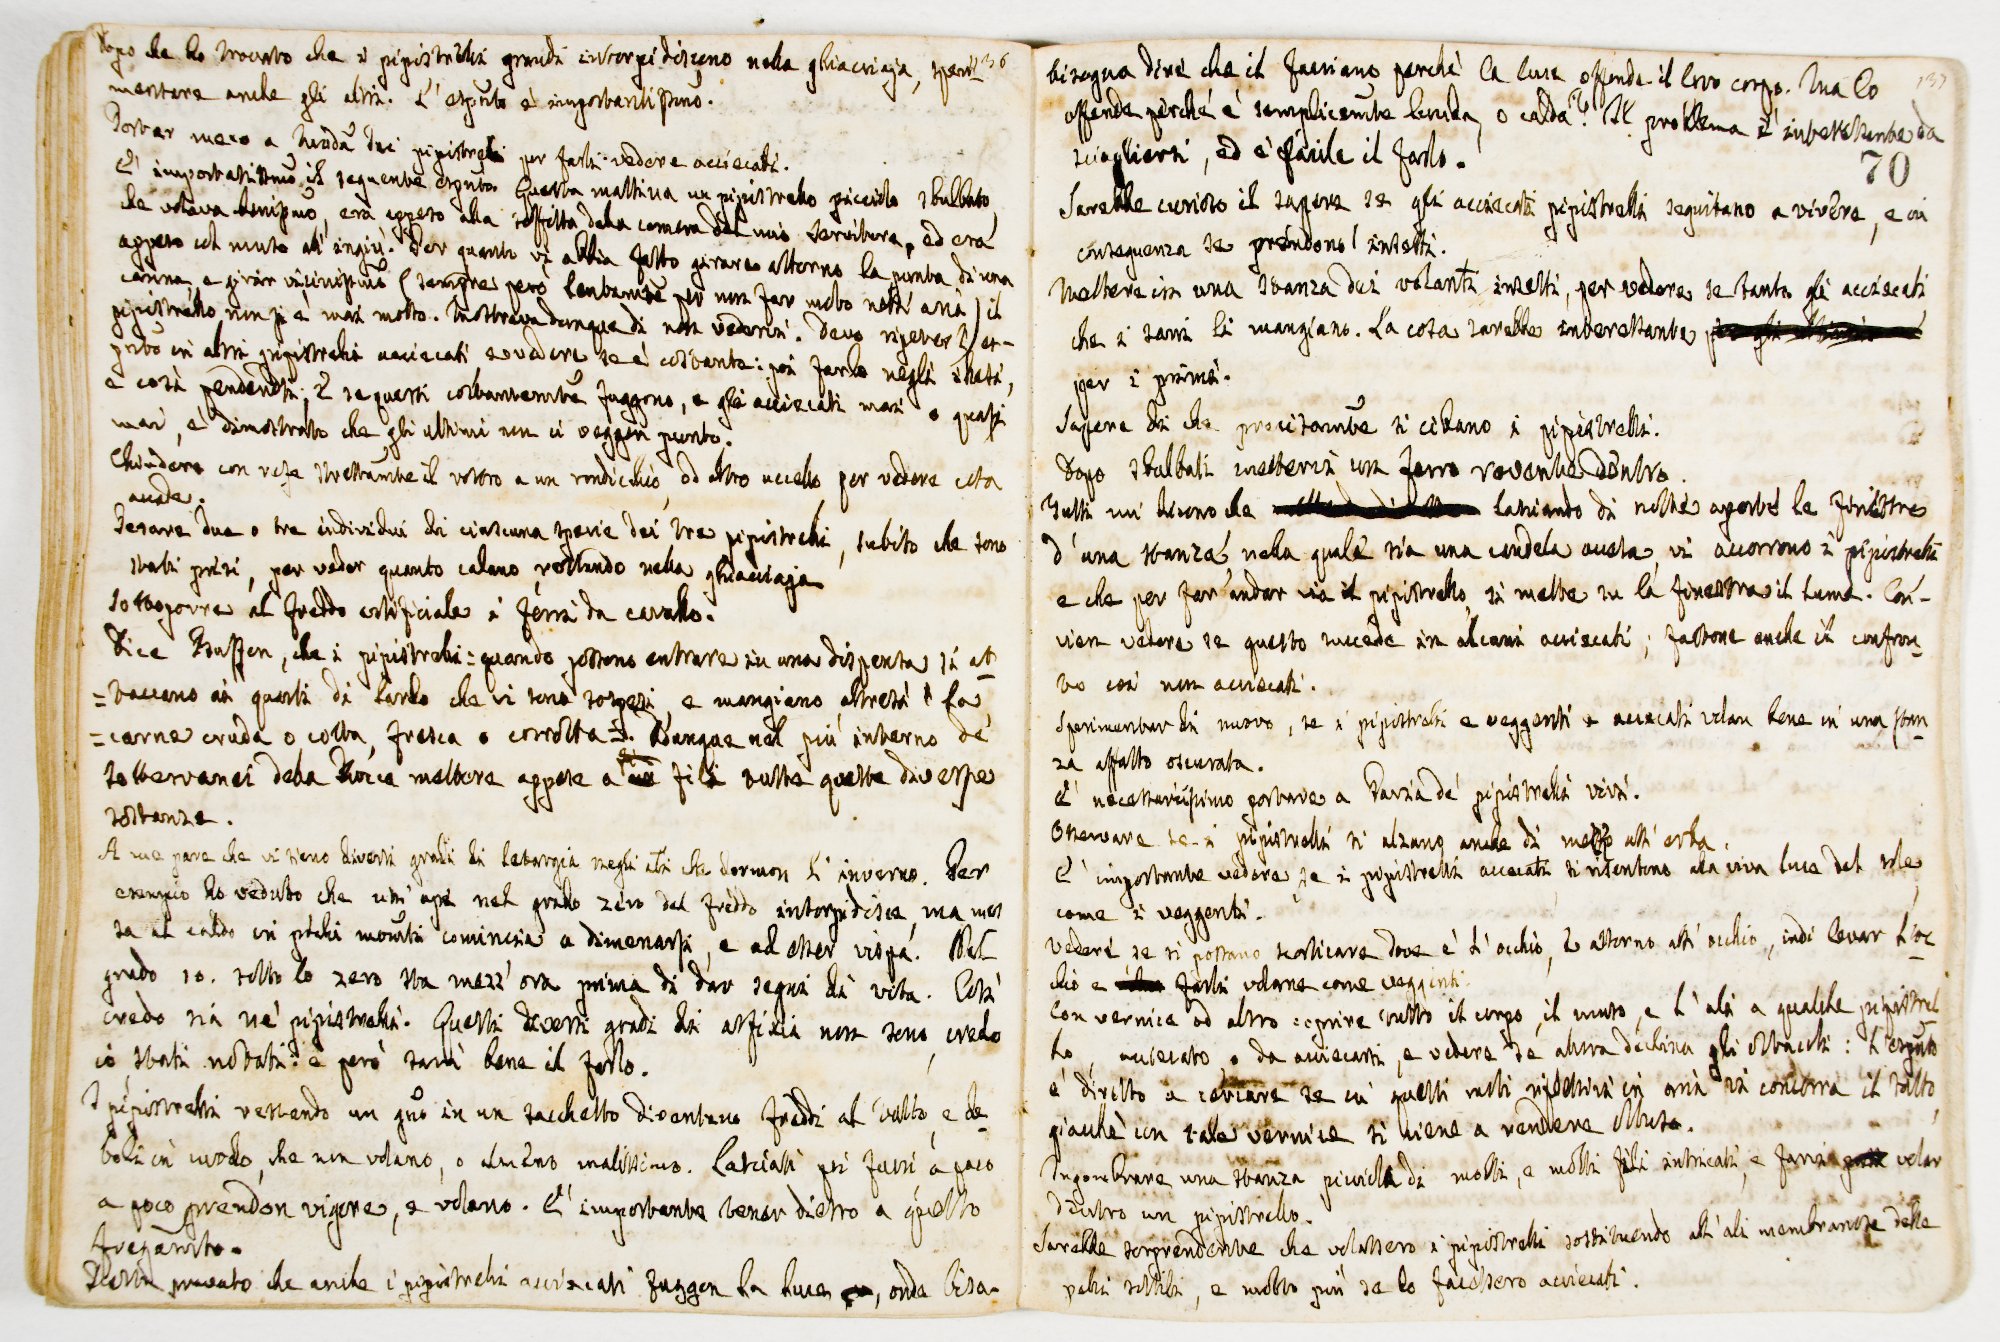 136
Dopo che ho trovato che i pipistrelli grandi intorpidiscono nella ghiacciaja, speri-
mentare anche gli altri. L'esprito è importantissimo.
Portar meco a Modã dei pipistrelli per farli vedere acciecati.
È importantissimo il seguente esprito. Questa mattina un pipistrello picciolo sbulbato,
che volava benissimo, era appeso alla soffitta della camera del mio servitore, ed era
appeso col muso all'ingiù. Per quanto vi abbia fatto girare attorno la punta di una
canna, e girar vicinissimo (sempre però lentamte per non far moto nell'aria) il
pipistrello non si è mai mosso. Mostrava dunque di non vederci. Devo ripeter l'es-
prito in altri pipistrelli acciecati e vedere se è costante: poi farlo negli illesi,
e così pendenti; E se questi costantemte fuggono, e gli acciecati mai o quasi
mai, è dimostrato che gli ultimi non ci veggon punto.
Chiudere con refe strettamte il rostro a un rondicchio, od altro uccello, per vedere cosa
accade.
Pesare due o tre individui di ciascuna spezie dei tre pipistrelli, subito che sono
stati presi, per veder quanto calano restando nella ghiacciaja
Sottoporre al freddo artificiale i ferri da cavallo.
Dice Buffon, che i pipistrelli = quando possono entrare in una dispensa si at-
= taccano ai quarti di lardo che vi sono sospesi, e mangiano altresì la
= carne cruda o cotta, fresca o corrotta =. Dunque nel più interno de'
sotterranei della Rocca mettere appese a fili tutte queste diverse
sostanze.
A me pare che vi sieno diversi gradi di letargia negli ali che dormon l'inverno. Per
esempio ho veduto che un'ape nel grado zero del freddo intorpidisce, ma mes
sa al caldo in pochi mounti comincia a dimenarsi, e ad esser vispa. Nel
grado 10. sotto lo zero sta mezz'ora prima di dar segni di vita. Così
credo sia ne' pipistrelli. Questi diversi gradi di asfixia non sono, credo
io, stati notati: e però sarà bene il farlo.
I pipistrelli restando un gno in un sacchetto diventano freddi al tatto, e de-
boli in modo, che non volano, o almeno malissimo. Lasciati poi fuori, a poco
a poco prendon vigore, e volano. È importante tener dietro a questo
fregamto.
Resta provato che anche i pipistrelli acciecati fuggon la luce, onde biso-
137
70
bisogna dire che il facciano perchè la luce offende il loro corpo. Ma lo
offende perchè è semplicemte lucida, o calda? Il problema è interessante da
sciogliersi, ed è facile il farlo.
Sarebbe curioso il sapere se gli acciecati pipistrelli seguitano a vivere, e in
conseguenza se prendono insetti.
Mettere in una stanza dei volanti insetti, per vedere se tanto gli acciecati
che i sani li mangiano. La cosa sarebbe interessante
per i primi.
Sapere di che precisamte si cibano i pipistrelli.
Dopo sbulbati metterci un ferro rovente dentro.
Tutti mi dicono che lasciando di notte aperte le finestre
d'una stanza, nella quale sia una candela accesa, vi accorrono i pipistrelli
e che per far andar via il pipistrello, si mette su la finestra il lume. Con-
vien vedere se questo succede in alcuni acciecati; fattone anche il confron-
to coi non acciecati.
Sperimentar di nuovo, se i pipistrelli e veggenti e acciecati volan bene in una stan-
za affatto oscurata.
È necessarissimo portare a Pavia de' pipistrelli vivi.
Osservare se i pipistrelli si alzano anche di mezzo all'erba.
È importante vedere, se i pipistrelli acciecati si risentono alla viva luce del sole,
come i veggenti.
Vedere se si possano scorticare dove è l'occhio, e attorno all'occhio, indi levar l'oc-
chio e farli volare come veggenti
Con vernice od altro coprire tutto il corpo, il muso, e l'ali a qualche pipistrel-
lo, acciecato, o da acciecarsi, e vedere se allora declina gli ostacoli: l'esprito
è diretto a cercare se in quelli voli riflessivi in aria vi concorra il tatto,
giacchè con tale vernice si viene a rendere ottuso.
Ingombrare una stanza picciola di molti, e molti fili intricati, e farvi volar
dentro un pipistrello.
Sarebbe sorprendente che volassero i pipistrelli sostituendo all'ali membranose delle
pelli sottili, e molto più se lo facessero acciecati.